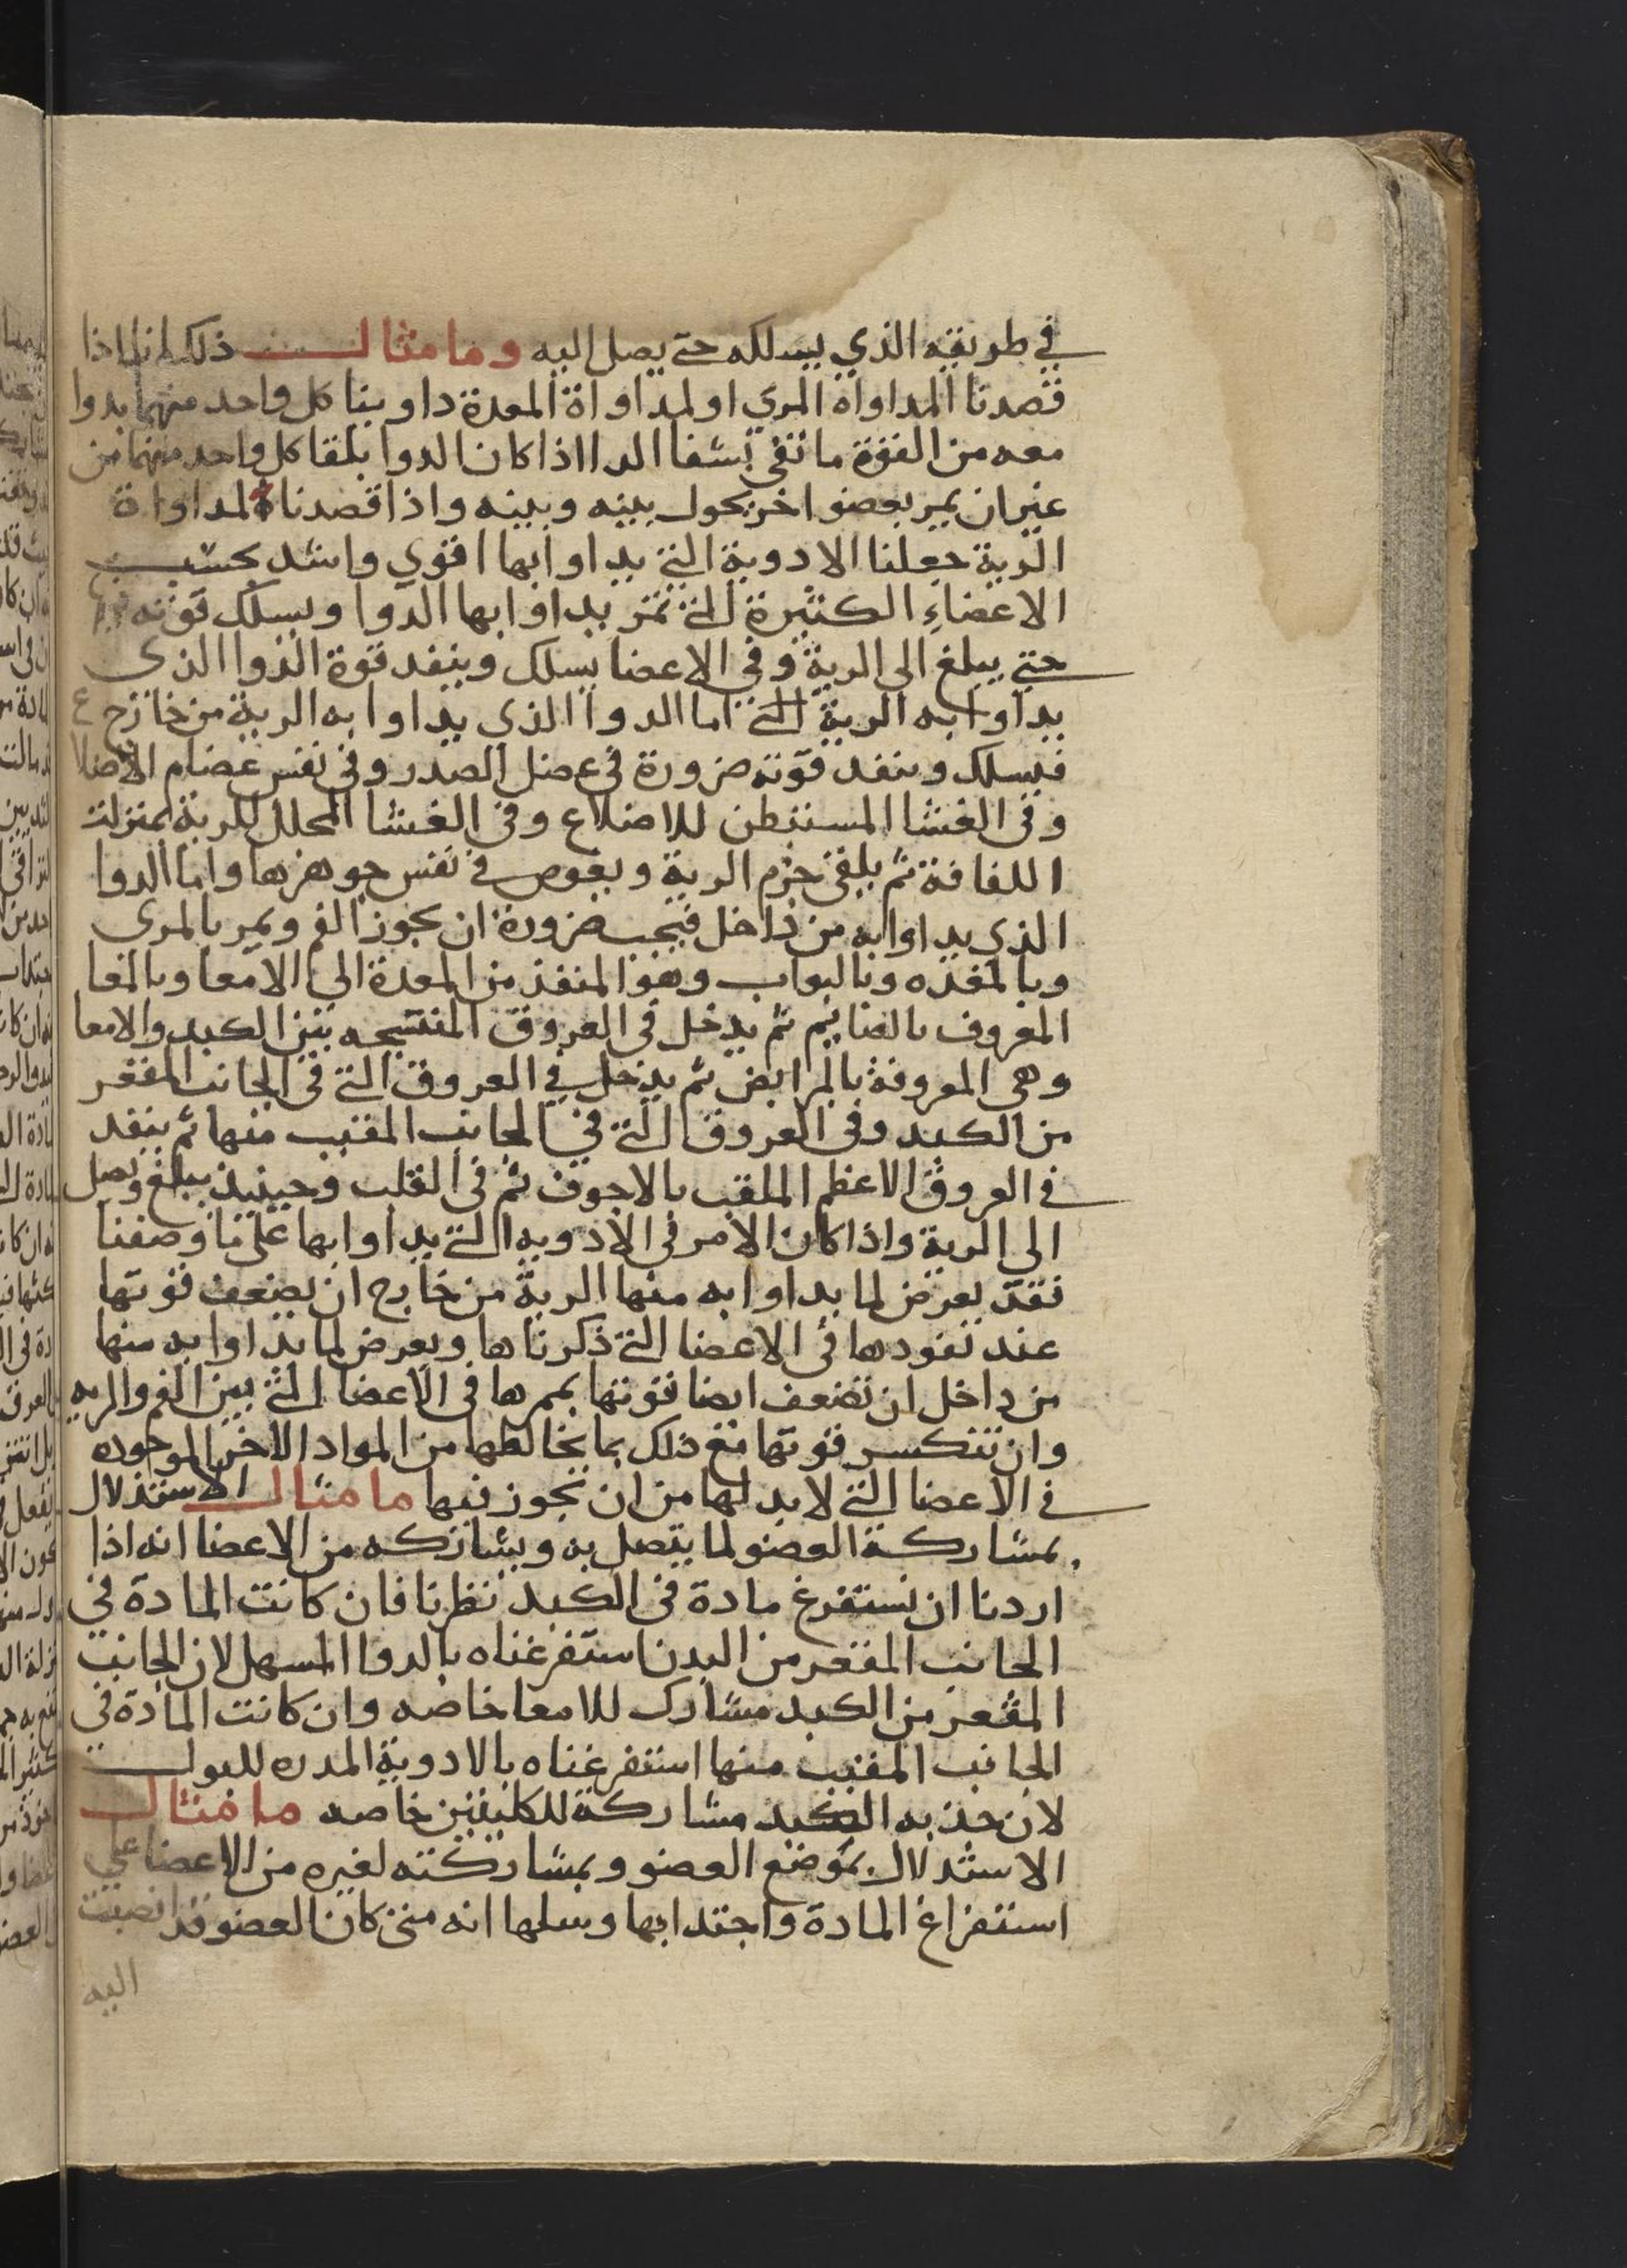 في طريقه الذي يسلكه حتى يصل اليه وما مثال ذلك انا اذا
قصدنا المداواة المري او لمداواة المعدة داوينا كل واحد منهما بدوا
معه من القوة ما تفي بشفا الدا اذا كان الدوا يلقا كل واحد منهما من
غير ان يمر بعضو اخر يحول بينه وبينه واذا قصدنا لمداواة
الرية جعلنا الادوية التي يداوا بها اقوي واشد بحسب
الاعضاءِ الكثيرة التي تمر يداوا بها الدوا ويسلك قوته فيها
حتى يبلغ الى الرية وفي الاعضا يسلك وينفد قوة الدوا الذي
يداوا به الرية التي اما الدوا الذي يداوا به الرية من خارج
فيسلك وينفد قوته ضرورة في عضل الصدر وفي نفس عضام الاضلاع
وفى الغشا المستبطن للاضلاع وفى الغشا المحلل للرية بمنزلة
اللفافة ثم يلقى جزم الرية ويغوص في نفس جوهرها واما الدوا
الذي يداوا به من داخل فيجب ضرورة ان يجوز الفم ويمر بالمرى
وبالمعده وبالبواب وهو المنفذ من المعدة الى الامعا وبالمعا
المعروف بالصايم ثم يدخل فى العروق المنتسجه بين الكبد والامعا
وهى المعروفة بالمرابض ثم يدخل في العروق التي فى الجانب المقعر
من الكبد وفى العروق التي في الجانب المقبب منها ثم ينفد
في العروق الاعظم الملقب بالاجوف ثم فى القلب وحينيذ يبلغ ويصل
الى الرية واذا كان الامر في الادويه التي يداوا بها على ما وصفنا
فقد يعرض لما يداوا به منها الرية من خارج ان يضعف قوتها
عند نفودها فى الاعضا التي ذكرناها ويعرض لما يداوا به منها
من داخل ان تضعف ايضا قوتها بممرها فى الاعضا التي بين الفم والريه
وان تنكسر قوتها مع ذلك بما يخالطها من المواد الاخر الموجوده
في الاعضا التي لا بد لها من ان تجوز فيها ما مثال الاستدلال
بمشاركة العضو لما يتصل به ويشاركه من الاعضا انه اذا
اردنا ان نستفرغ مادة فى الكبد نظرنا فان كانت المادة في
الجانب المقعر من البدن استفرغناه بالدوا المسهل لان الجانب
المقعر من الكبد مشارك للامعا خاصه وان كانت المادة في
الجانب المقبب منها استفرغناه بالادوية المدره للبول
لان حذبه الكبد مشاركة للكليتين خاصه ما مثال
الاستدلال بموضع العضو وبمشاركته لغيره من الاعضا علي
استفراغ المادة واجتدابها وسلها انه متى كان العضو قد انصبت
اليه